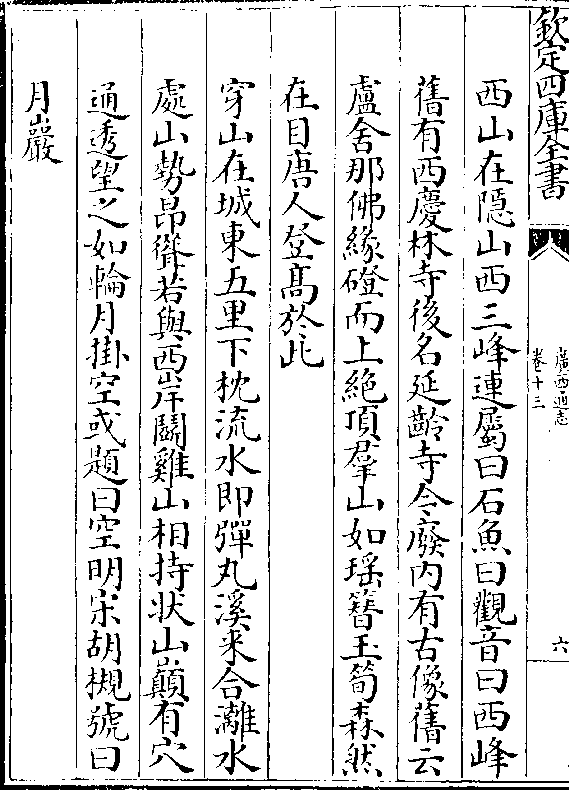 欽定四庫全書
廣西通志
卷十三
六
西山在隱山西三峰連屬曰石魚曰觀音曰西峰
舊有西慶林寺後名延齡寺今廢内有古像舊云
盧舍那佛緣磴而上絶頂羣山如瑶簪玉筍森然
在目唐人登髙於此
穿山在城東五里下枕流水即彈丸溪来合灕水
處山勢昂聳若與西岸鬭雞山相持狀山巔有穴
通透望之如輪月掛空或題曰空明宋胡槻號曰
月巖